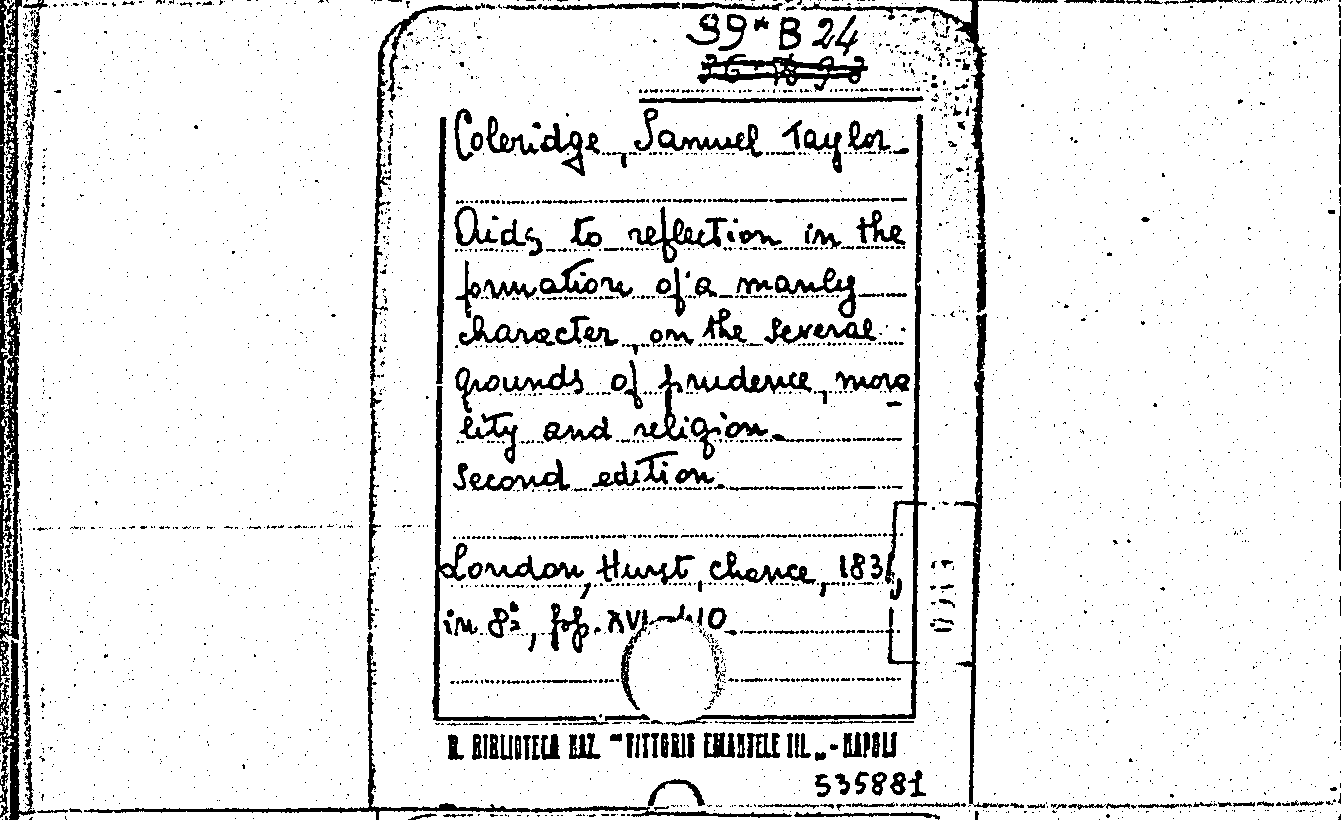 S9* B 24
Coleridge, Samuel Taylor.
Aids to reflection in the
formation of a manly
character, on the several
grounds of prudence, mora
lity and religion.
Second edition.
London, Hurst, Chance, 1831,
in 8°, pp. XVI-410
R. BIBLIOTECA NAZ. "VITTORIO EMANUELE III„ - NAPOLI
535881